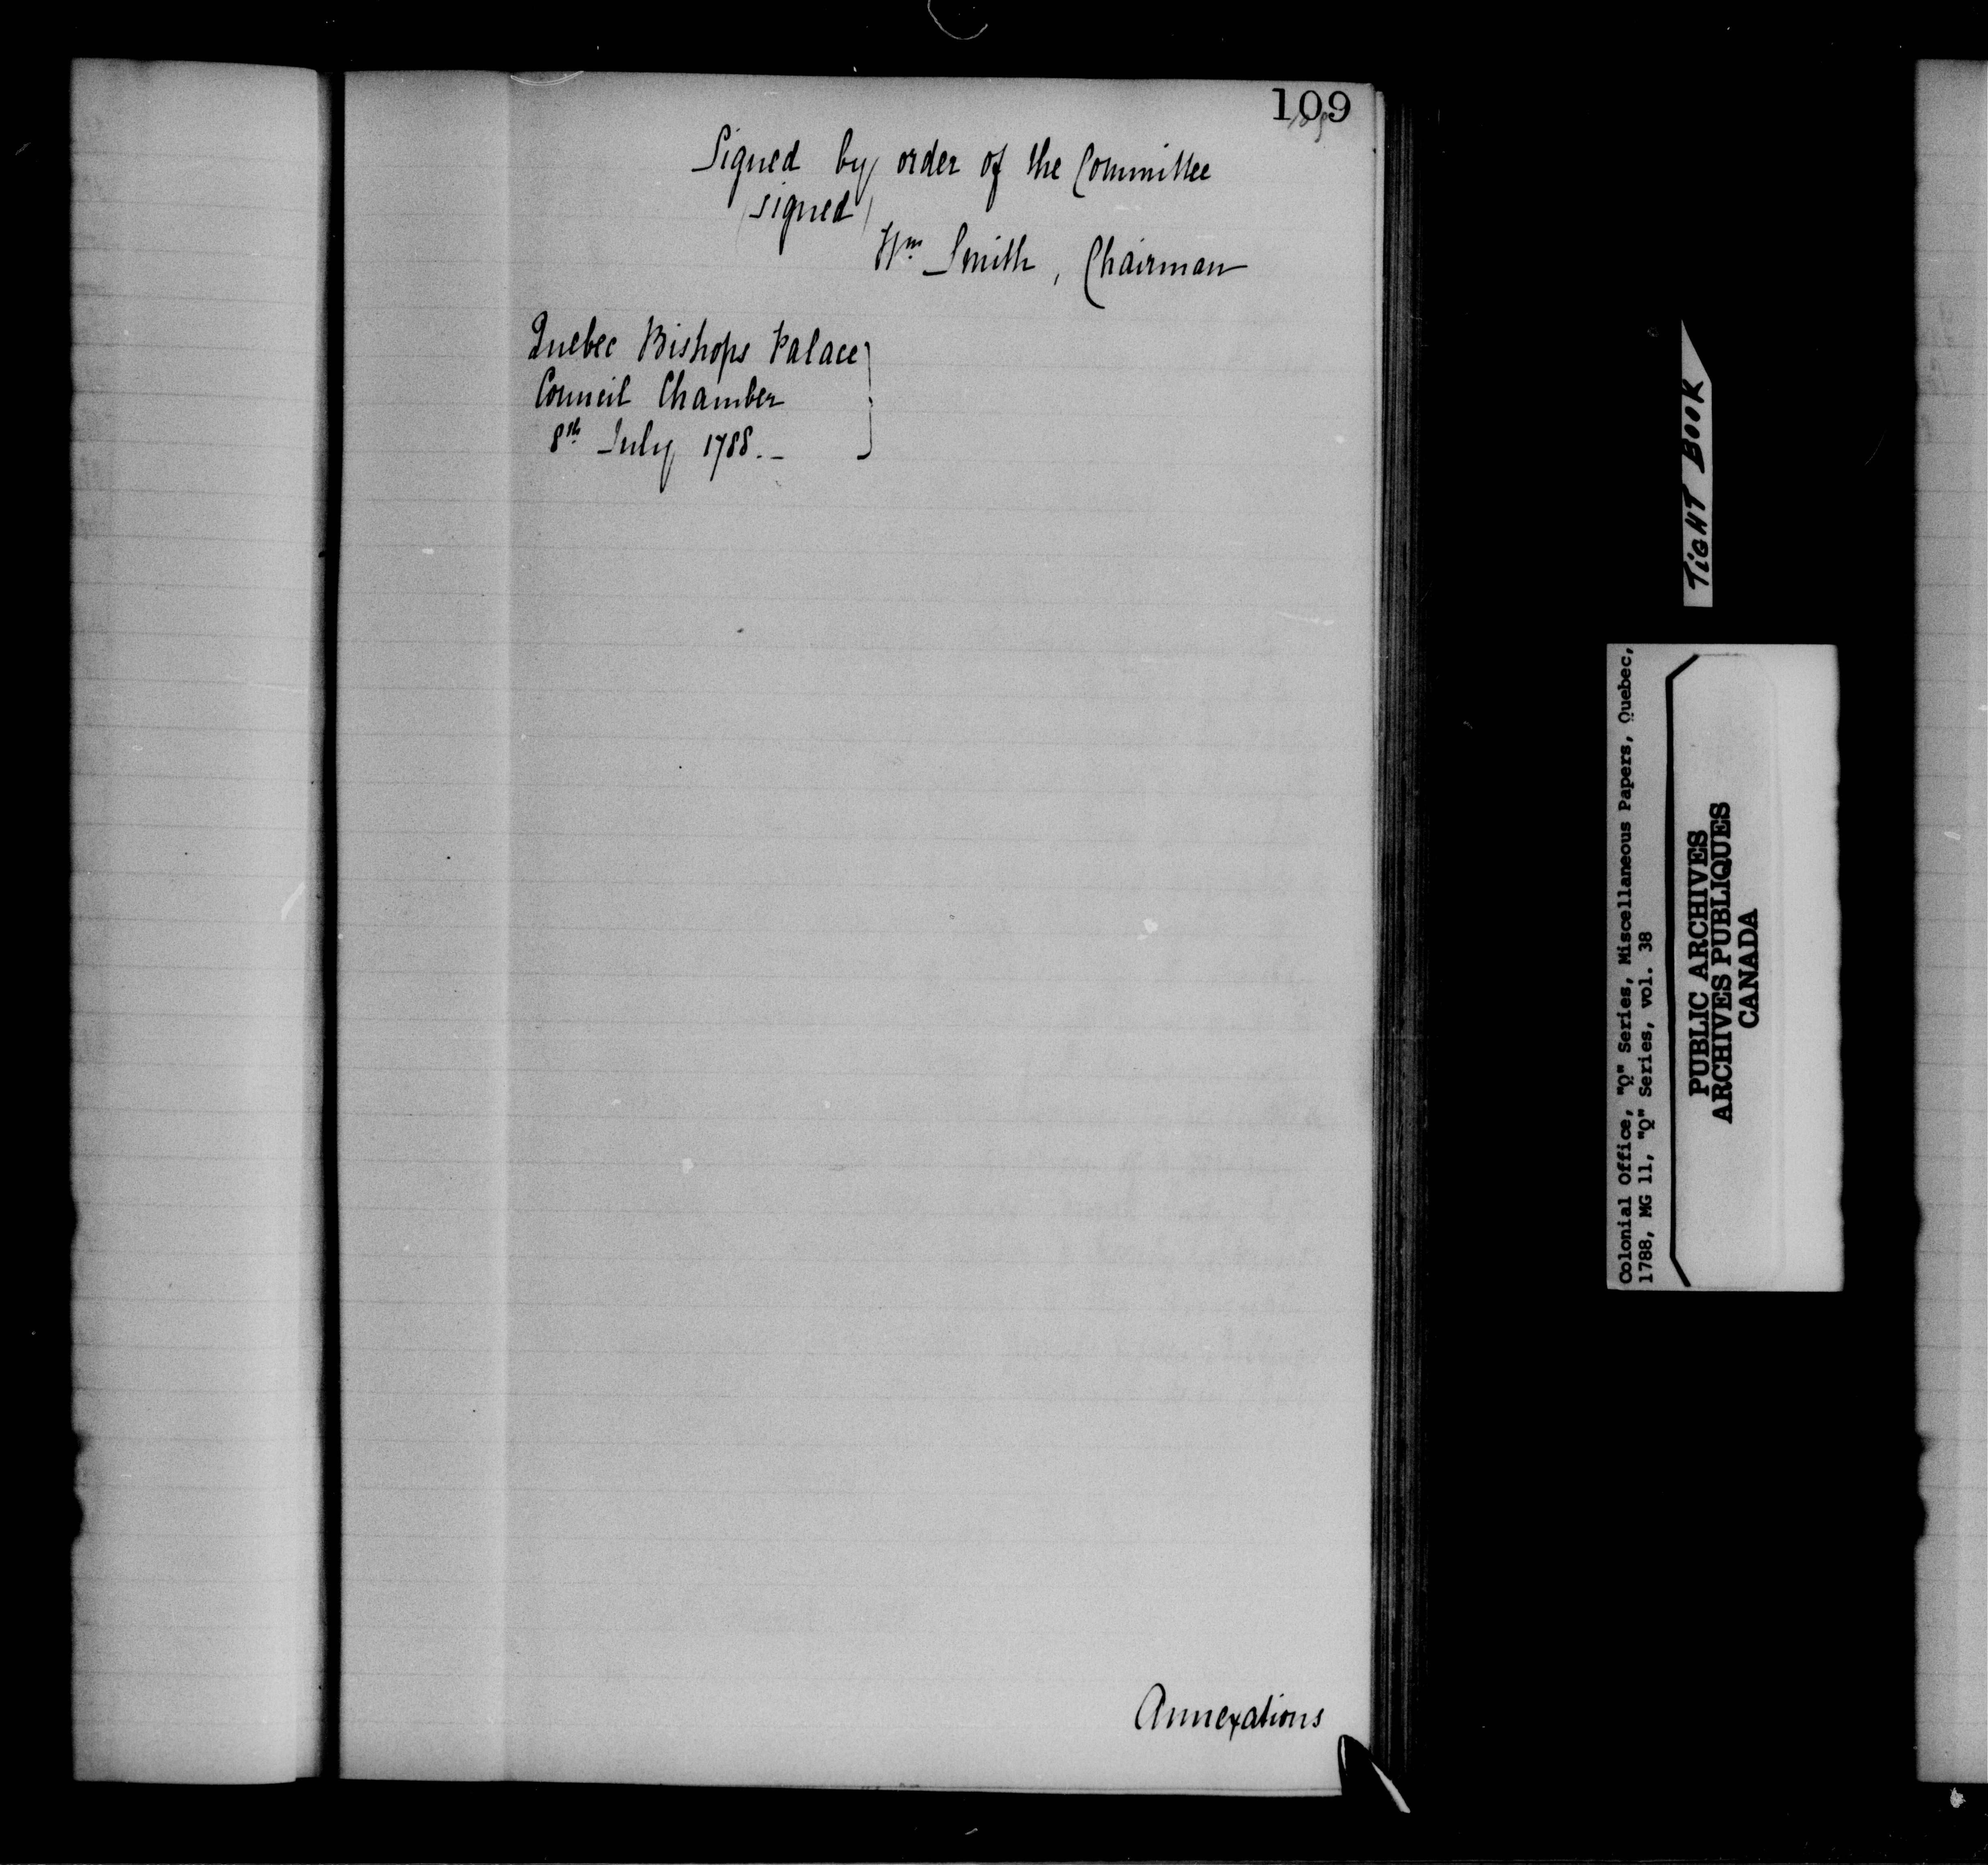 109
Signed by order of the Committee
(signed)
Wm Smith, Chairman
Quebec Bishops Palace
Council Chamber
8th July 1788.-
Annexations
TIGHT BOOK
Colonial Office, "Q" Series, Miscellaneous Papers, Quebec,
1788, MG 11, "Q" Series, vol. 38
PUBLIC ARCHIVES
ARCHIVES PUBLIQUES
CANADA